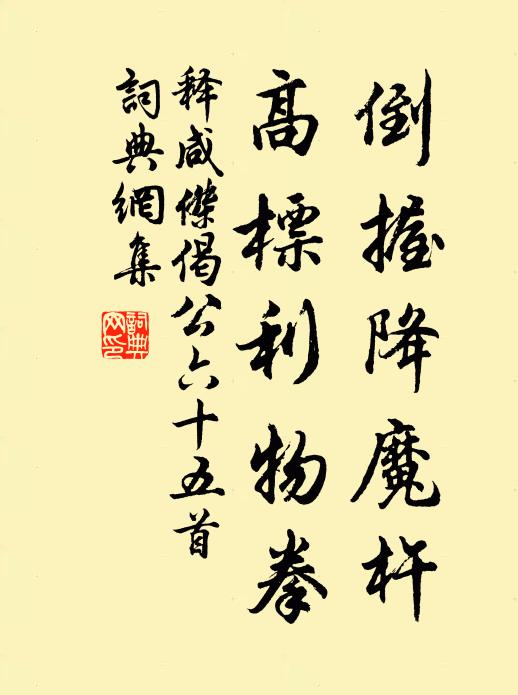 倒握降魔杵
高標利物拳
释咸傑偈公六十五首
詞典網集
詞典網印